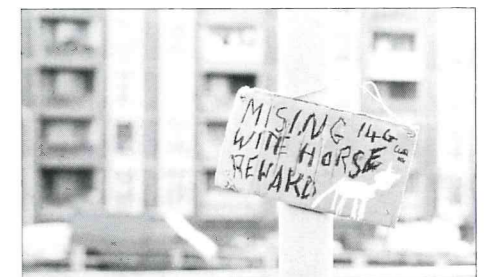 MISING 14G
WITE HORSE
REWARD